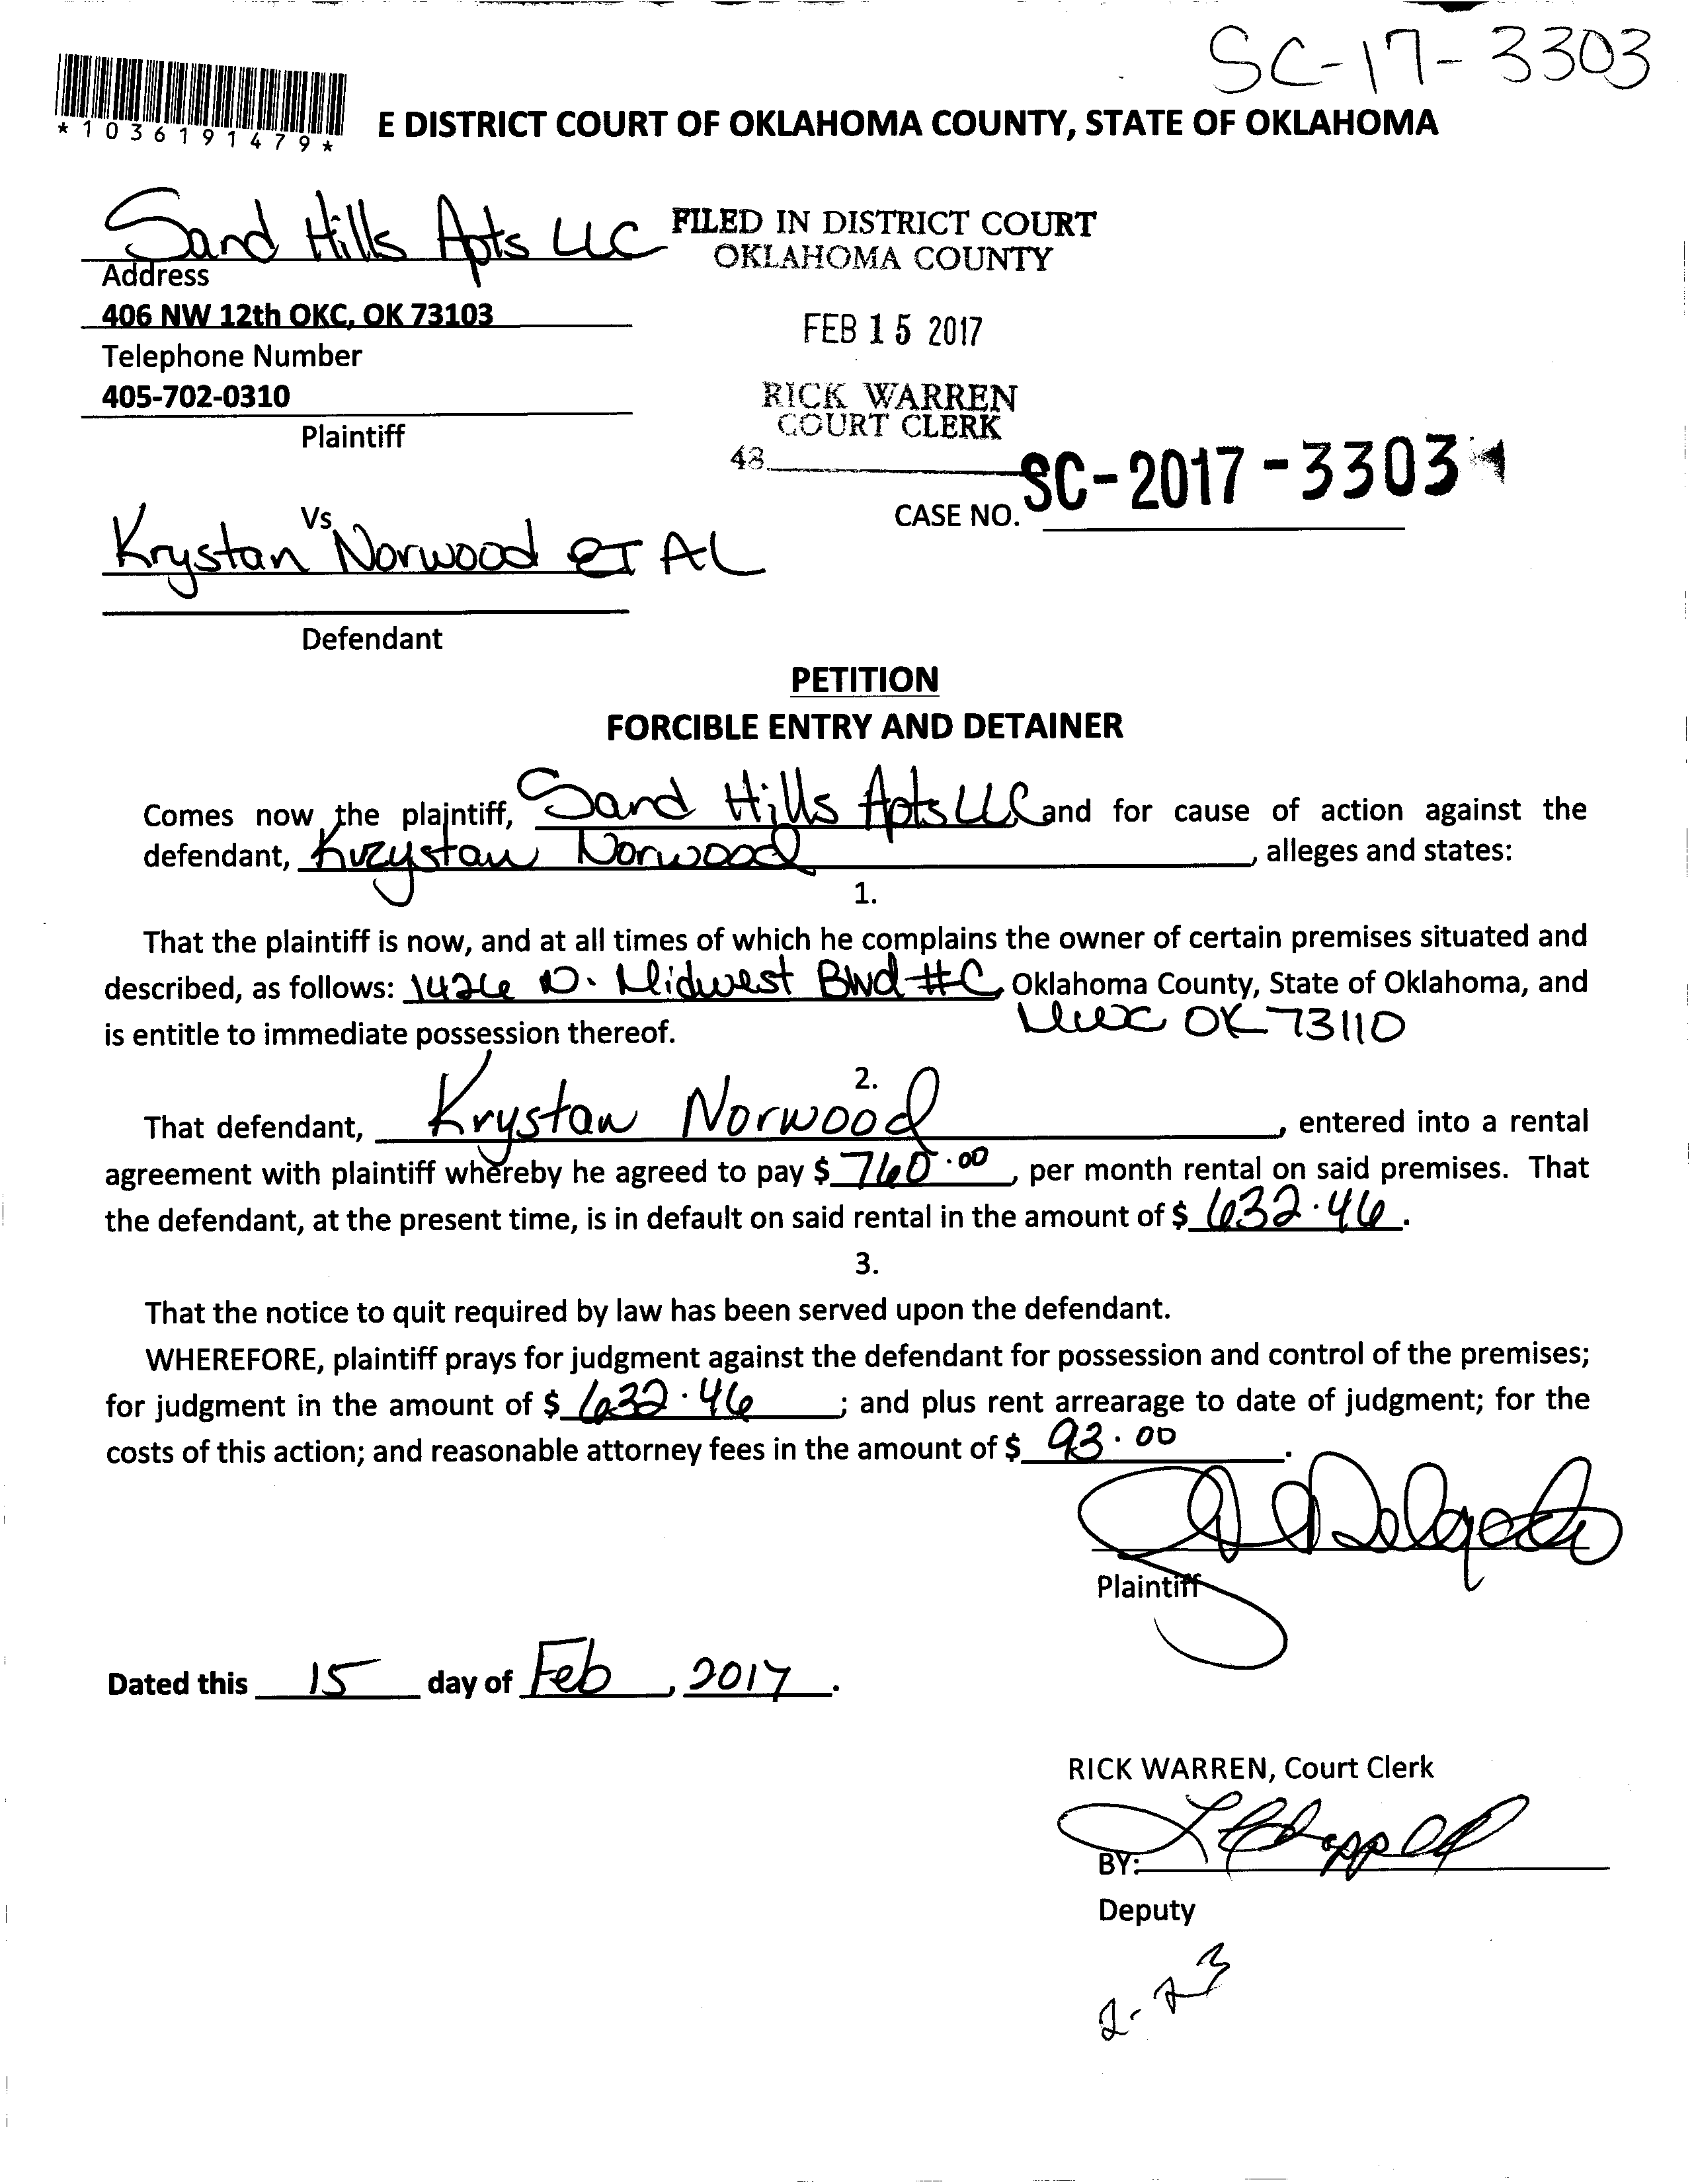 SC-17-3303
*1036191479*
E DISTRICT COURT OF OKLAHOMA COUNTY, STATE OF OKLAHOMA
Sand Hills Apts LLC
Address
406 NW 12th OKC, OK 73103
Telephone Number
405-702-0310
Plaintiff
FILED IN DISTRICT COURT
OKLAHOMA COUNTY
FEB 15 2017
RICK WARREN
COURT CLERK
43
CASE NO. SC-2017-3303
Vs
Krystan Norwood ET AL
Defendant
PETITION
FORCIBLE ENTRY AND DETAINER
Comes now the plaintiff, Sand Hills Apts LLC and for cause of action against the
defendant, Krystan Norwood, alleges and states:
1.
That the plaintiff is now, and at all times of which he complains the owner of certain premises situated and
described, as follows: 1426 N. Midwest Blvd #C, Oklahoma County, State of Oklahoma, and
is entitle to immediate possession thereof. MWC OK 73110
2.
That defendant, Krystan Norwood, entered into a rental
agreement with plaintiff whereby he agreed to pay $ 760.00, per month rental on said premises. That
the defendant, at the present time, is in default on said rental in the amount of $ 632.46.
3.
That the notice to quit required by law has been served upon the defendant.
WHEREFORE, plaintiff prays for judgment against the defendant for possession and control of the premises;
for judgment in the amount of $ 632.46; and plus rent arrearage to date of judgment; for the
costs of this action; and reasonable attorney fees in the amount of $ 93.00.
Delgado
Plaintiff
Dated this 15 day of Feb, 2017.
RICK WARREN, Court Clerk
BY:
Deputy
2-23